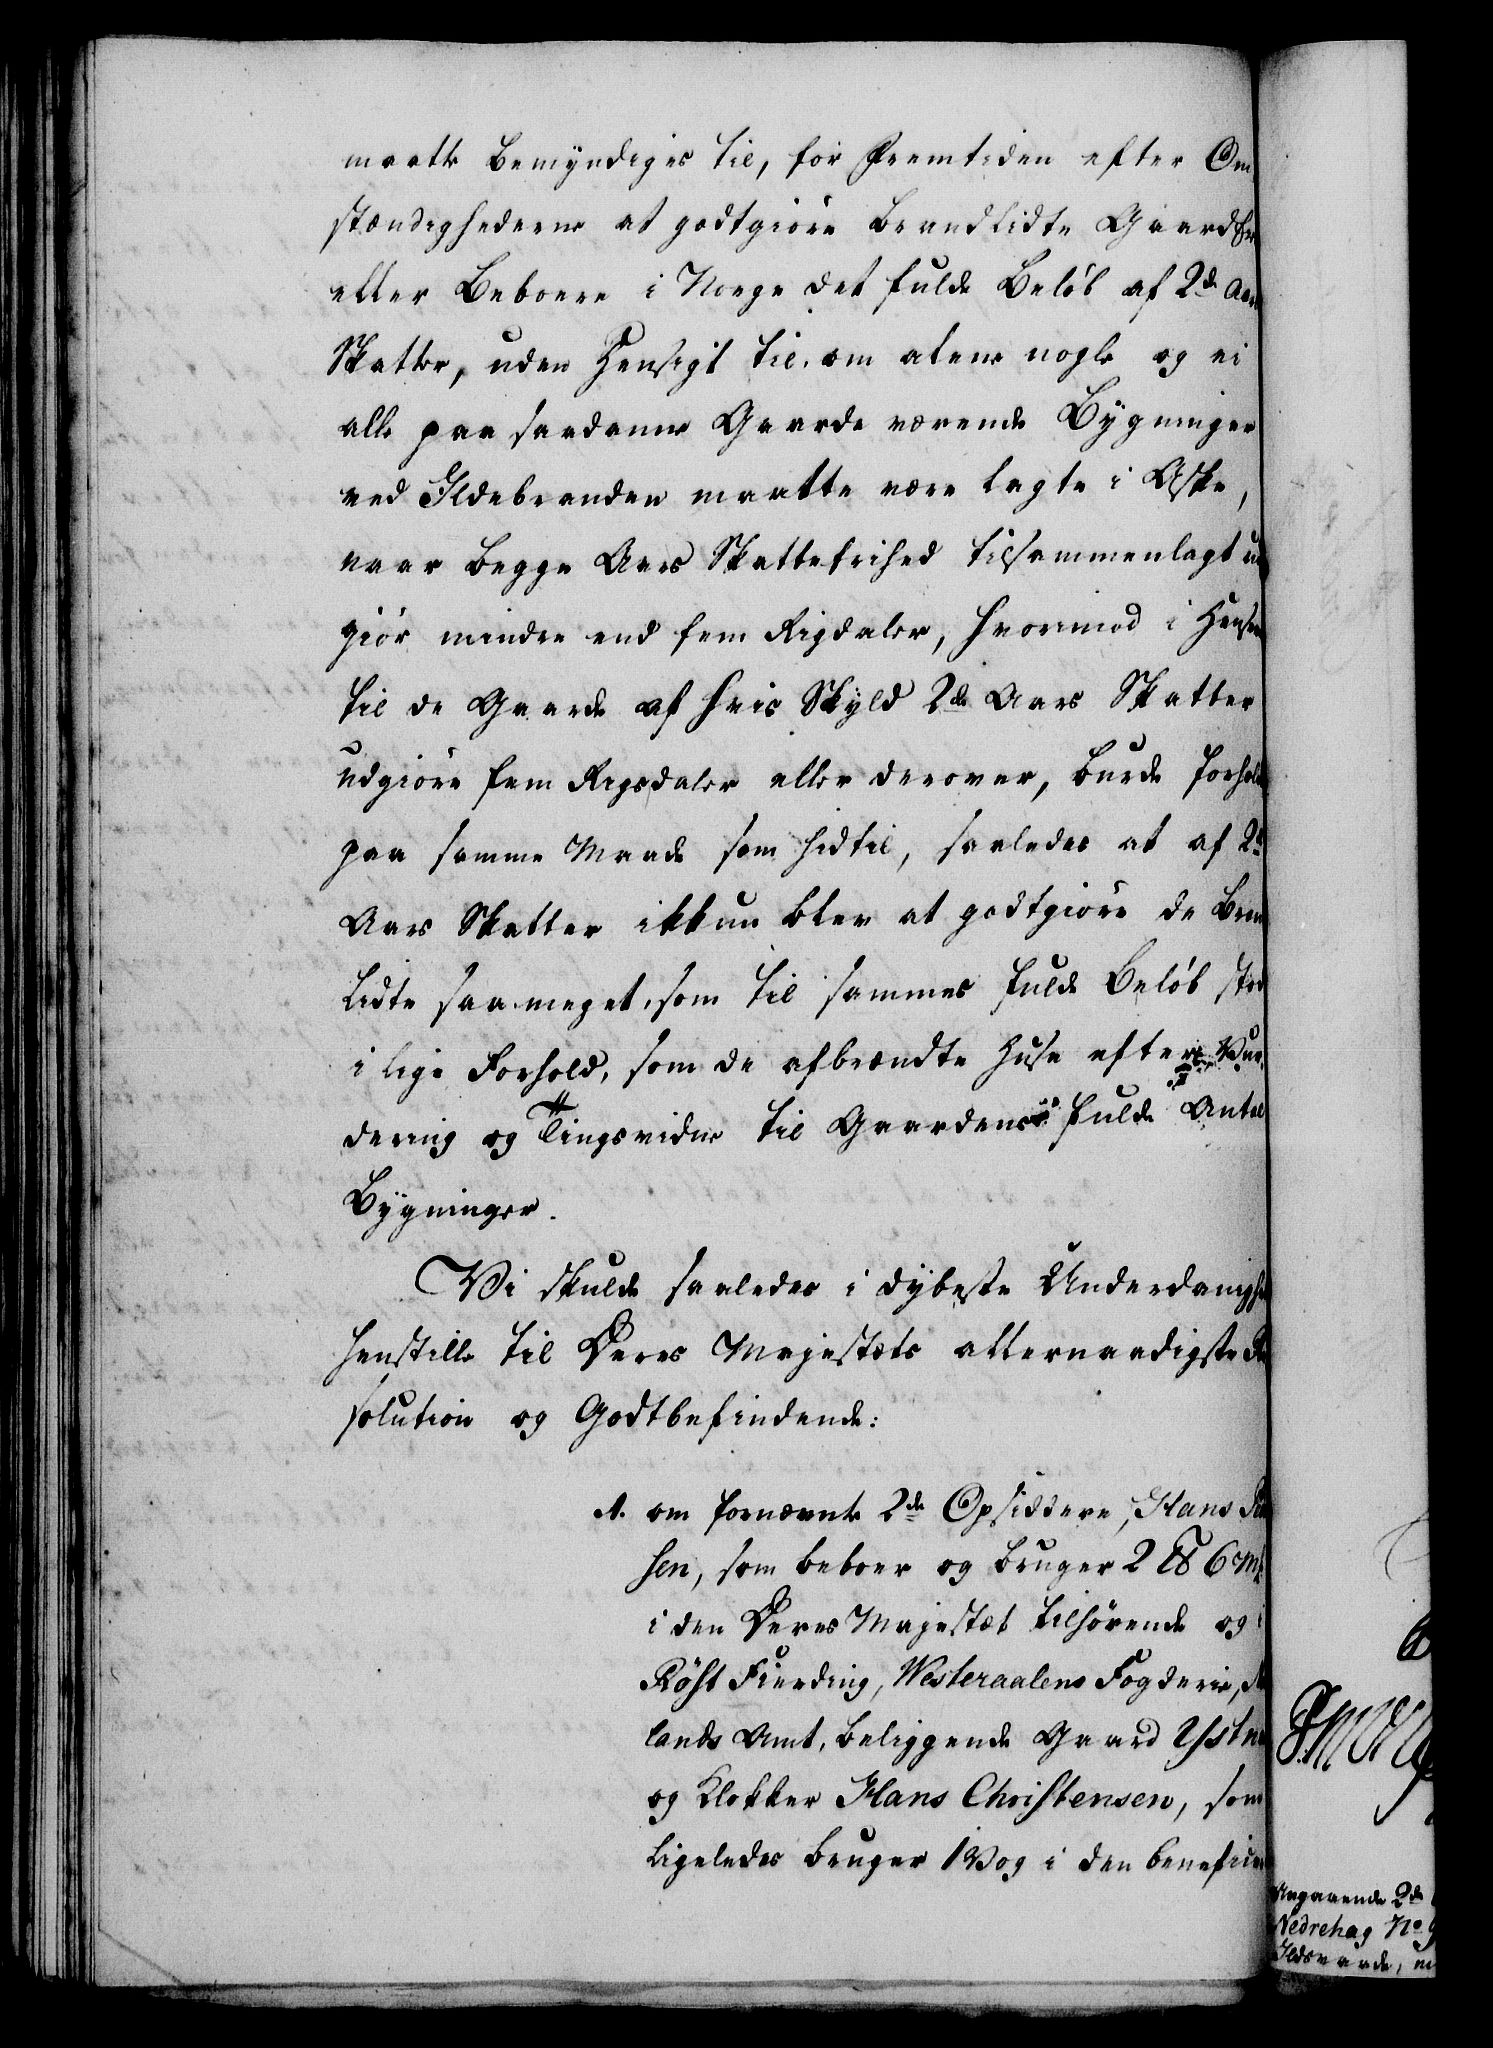 maatte bemyndiges til, for Fremtiden efter Om
stændighederne at godtgiøre brandlidte Gaard
eller Beboere i Norge det fulde Beløb af 2de Aars
Skatter, uden Hensigt til, om alene nogle og ei
alle paa saadanne Gaarde værende Bygninger
ved Ildebranden maatte være lagte i Aske,
naar begge Aars Skattefrihed tilsammenlagt ud
giør mindre end fem Rigdaler, hvorimod i Hensee
til de Gaarde af hvis Skyld 2de Aars Skatter
udgiøre fem Rigsdaler eller derover, burde forhol
paa samme Maade som hidtil, saaledes at af 2de
Aars Skatter ikkun blev at godtgiøre de Bran
lidte saa meget, som til sammes fulde Beløb stod
i lige Forhold, som de afbrændte Huse efter Vur
dering og Tingsvidne til Gaardens fulde Antal
Bygninger.
Vi skulde saaledes i dybeste Underdanighe
henstille til Deres Majestæts allernaadigste Re
solution og Godtbefindende:
1. om fornævnte 2de Opsiddere, Hans
sen, som beboer og bruger 2 ℔ 6 Mk
i den Deres Majestæt tilhørende og i
Röst Fierding, Westeraalens Fogderie,
lands Amt, beliggende Gaard Ystnes
og Klokker Hans Christensen, som
ligeledes bruger 1 Vog i den benefice
Angaaende 2de
Nedrehag No 9
Ildsvaade,